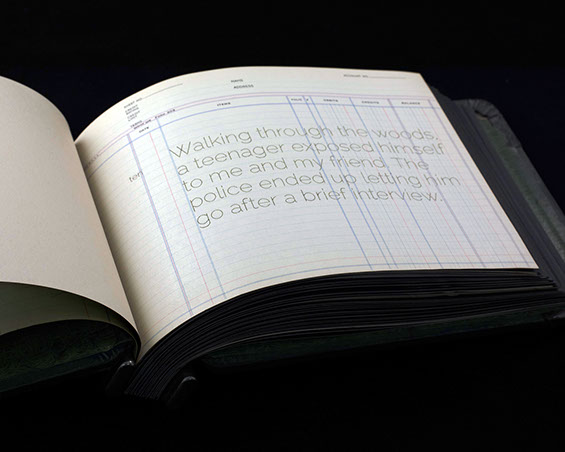 NAME
ADDRESS
ACCOUNT NO.
SHEET NO.
DATE
ITEMS
FOLIO
DEBITS
CREDITS
BALANCE
ten
Walking through the woods,
a teenager exposed himself
to me and my friend. The
police ended up letting him
go after a brief interview.